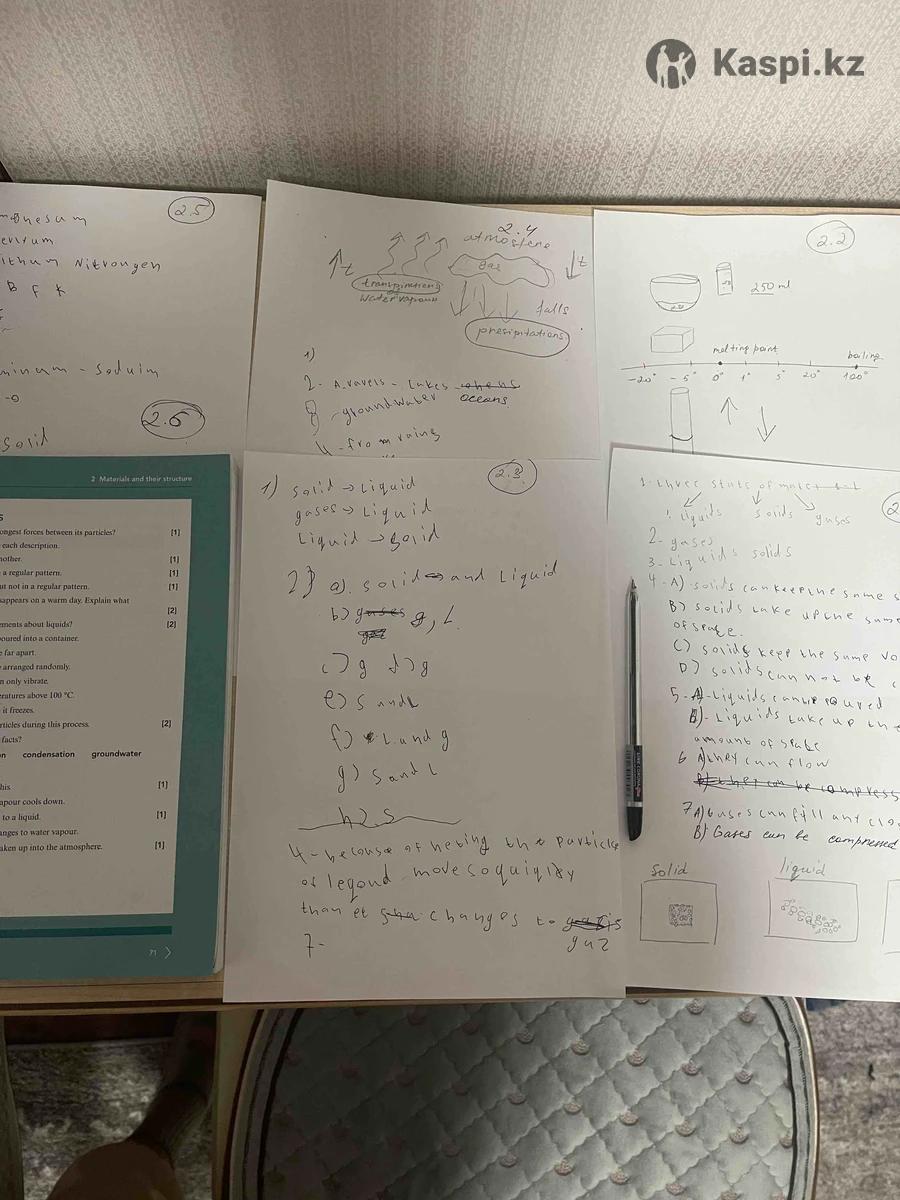 Kaspi.kz
2.5
Nitrongen
B F K
- Soduim
2.6
solid
2.4
atmosfere
gas
t
t
transpirations
water vapour
falls
precipitations
1)
2- - Lakes
oceans
- groundwater
4 - from rains
2.2
250 ml
melting point
boiling
-20° -5° 0° 1° 5° 20° 100°
2 Materials and their structure
ongest forces between its particles? [1]
each description.
nother. [1]
a regular pattern. [1]
ut not in a regular pattern. [1]
sappears on a warm day. Explain what
[2]
ements about liquids? [2]
oured into a container.
e far apart.
arranged randomly.
n only vibrate.
eratures above 100 °C.
it freezes.
rticles during this process. [2]
facts?
on condensation groundwater
his [1]
apour cools down.
to a liquid. [1]
anges to water vapour.
aken up into the atmosphere. [1]
2.3
1) solid → Liquid
gases → Liquid
Liquid → solid
2) a) solid and Liquid
b) g, L
c) g d) g
e) s and L
f) L and g
g) s and L
h2s
4 - because of heting the particles
of leqond move so quiqlxy
than et changes to
gaz
7-
1. three stats of
Liquids solids gases
2- gases
3- Liquids solids
4- A) solids can keep the same s
B) solids take up the same
of space.
C) solids keep the same vo
D) solids can not be c
5- A- Liquids can be poured
B)- Liquids take up the
amount of space
6 A) they can flow
B) they can be compress
7 A) Gases can fill any clo
B) Gases can be compressed
solid liquid